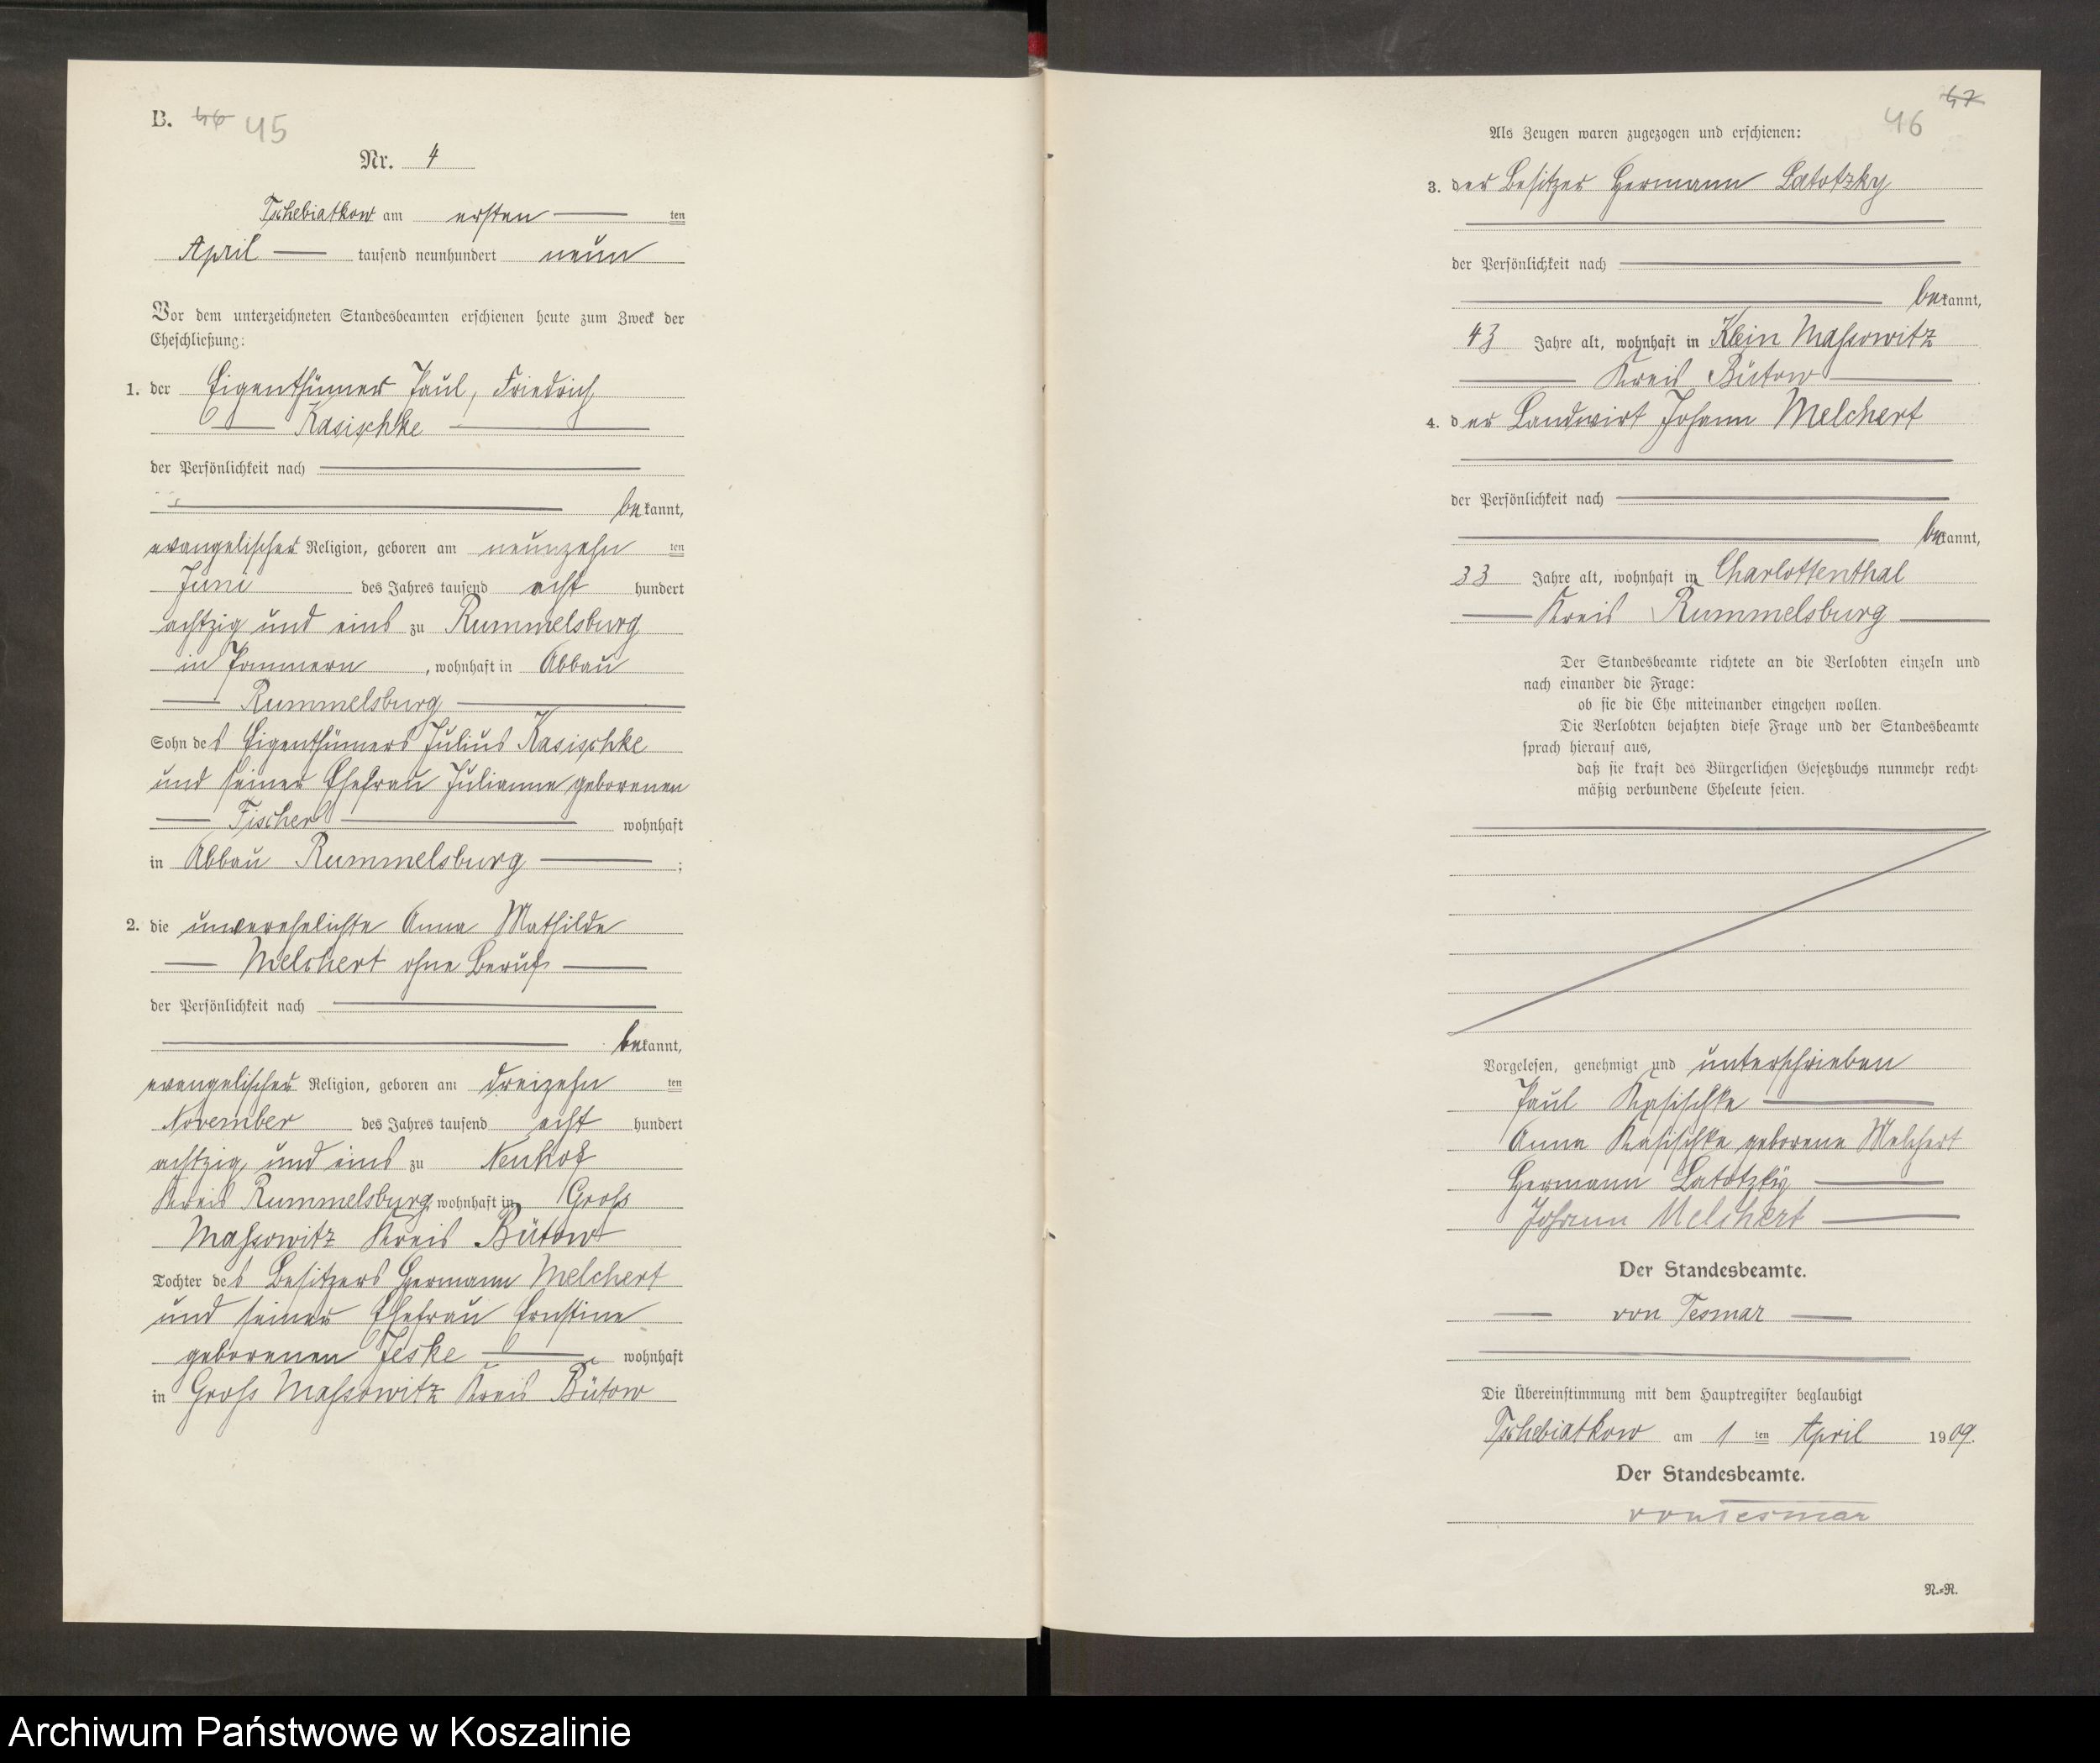 B. 46 45
Nr. 4
Tschebiatkow am ersten ten
April tausend neunhundert neun
Vor dem unterzeichneten Standesbeamten erschienen heute zum Zweck der
Eheschließung:
1. der Eigenthümer Paul, Friedrich
Kasischke
der Persönlichkeit nach
bekannt,
evangelischer Religion, geboren am neunzehn ten
Juni des Jahres tausend acht hundert
achtzig und eins zu Rummelsburg
in Pommern, wohnhaft in Abbau
Rummelsburg
Sohn des Eigenthümers Julius Kasischke
und seiner Ehefrau Julianne geborenen
Fischer wohnhaft
in Abbau Rummelsburg ;
2. die unverehelichte Anna Mathilde
Melchert ohne Beruf
der Persönlichkeit nach
bekannt,
evangelischer Religion, geboren am dreizehn ten
November des Jahres tausend acht hundert
achtzig und eins zu Neuhof
Kreis Rummelsburg, wohnhaft in Groß
Massowitz Kreis Bütow
Tochter des Besitzers Hermann Melchert
und seiner Ehefrau Ernstine
geborenen Jeske wohnhaft
in Groß Massowitz Kreis Bütow
47
46
Als Zeugen waren zugezogen und erschienen:
3. der Besitzer Hermann Latotzky
der Persönlichkeit nach
bekannt,
43 Jahre alt, wohnhaft in Klein Massowitz
Kreis Bütow
4. der Landwirt Johann Melchert
der Persönlichkeit nach
bekannt,
33 Jahre alt, wohnhaft in Charlottenthal
Kreis Rummelsburg
Der Standesbeamte richtete an die Verlobten einzeln und
nach einander die Frage:
ob sie die Ehe miteinander eingehen wollen.
Die Verlobten bejahten diese Frage und der Standesbeamte
sprach hierauf aus,
daß sie kraft des Bürgerlichen Gesetzbuchs nunmehr recht-
mäßig verbundene Eheleute seien.
Vorgelesen, genehmigt und unterschrieben
Paul Kasischke
Anna Kasischke geborene Melchert
Hermann Latotzky
Johann Melchert
Der Standesbeamte.
von Tesmar
Die Übereinstimmung mit dem Hauptregister beglaubigt
Tschebiatkow am 1 ten April 1909.
Der Standesbeamte.
von Tesmar
N.-R.
Archiwum Państwowe w Koszalinie